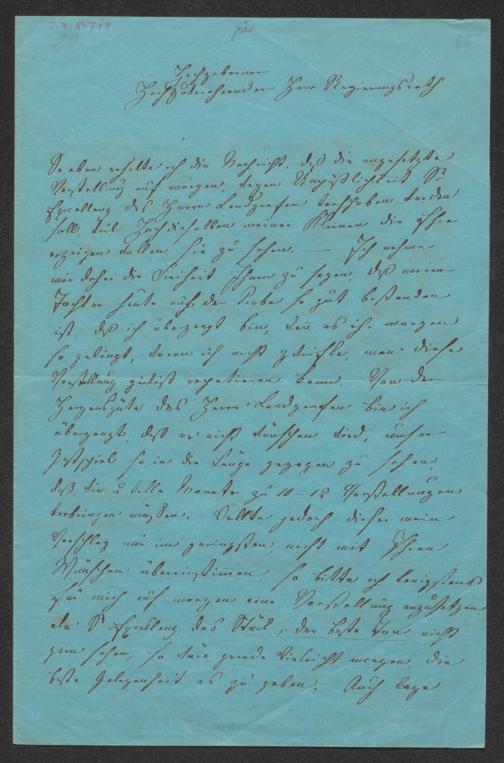 Hochgeborner
Hochzuverehrender Herr Regierungsrath
So eben erhalte ich die Nachricht, daß die angesetzte
Vorstellung auf morgen, wegen Unpäßlichkeit Sr
Excellenz des Herrn Landgrafen verschoben werden
soll, weil Hochdieselben meiner Kleinen die Ehre
erzeigen wollen sie zu sehen. — Ich nehme
mir daher die Freiheit Ihnen zu sagen, daß meine
Tochter heute auf der Probe so gut bestanden
ist, daß ich überzeugt bin, wenn es ihr morgen
so gelingt, woran ich nicht zweifle, man diese
Vorstellung gewiß repetieren kann. Von der
Herzensgüte des Herrn Landgrafen bin ich
überzeugt, daß er nicht wünschen wird, unser
Gastspiel so in die Länge gezogen zu sehen,
daß wir 2 volle Monate zu 10 - 12 Vorstellungen
verbringen müssen. Sollte jedoch dieser mein
Vorschlag nur im geringsten nicht mit Ihren
Wünschen übereinstimmen, so bitte ich wenigstens
für mich auf morgen eine Vorstellung anzusetzen.
da Sr Excellenz das Stück, der beste Ton nicht
gern sehen, so wäre gerade vielleicht morgen, die
beste Gelegenheit es zu geben. Auch